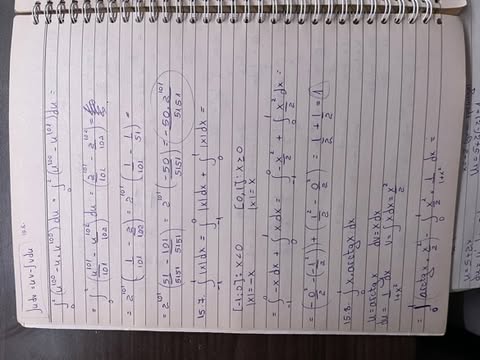 ∫u dv = uv - ∫v du
∫₀² (u¹⁰⁰ - u·u¹⁰⁰) du = ∫₀² (u¹⁰⁰ - u¹⁰¹) du =
= ∫₀² (u¹⁰¹/101 - u¹⁰²/102) du = (2¹⁰¹/101 - 2¹⁰²/102) =
= 2¹⁰¹ (1/101 - 2/102) = 2¹⁰¹ (1/101 - 1/51) =
= 2¹⁰¹ (51/5151 - 101/5151) = 2¹⁰¹ (-50/5151) = -50·2¹⁰¹/5151
15.7. ∫₋₁¹ |x| dx = ∫₋₁⁰ |x| dx + ∫₀¹ |x| dx =
[-1;0]: x<0 [0,1]: x≥0
|x| = -x |x| = x
= ∫₋₁⁰ -x dx + ∫₀¹ x dx = ∫₋₁⁰ -x²/2 + ∫₀¹ x²/2 dx =
= (-0²/2 - (-1²/2)) + (1²/2 - 0²/2) = 1/2 + 1/2 = 1
15.8. ∫₀¹ x·arctg x dx
u = arctg x dv = x dx
du = 1/(1+x²) dx v = ∫x dx = x²/2
= ∫₀¹ (arctg x · x²/2) - ∫₀¹ x²/2 · 1/(1+x²) dx =
u = 5+2x